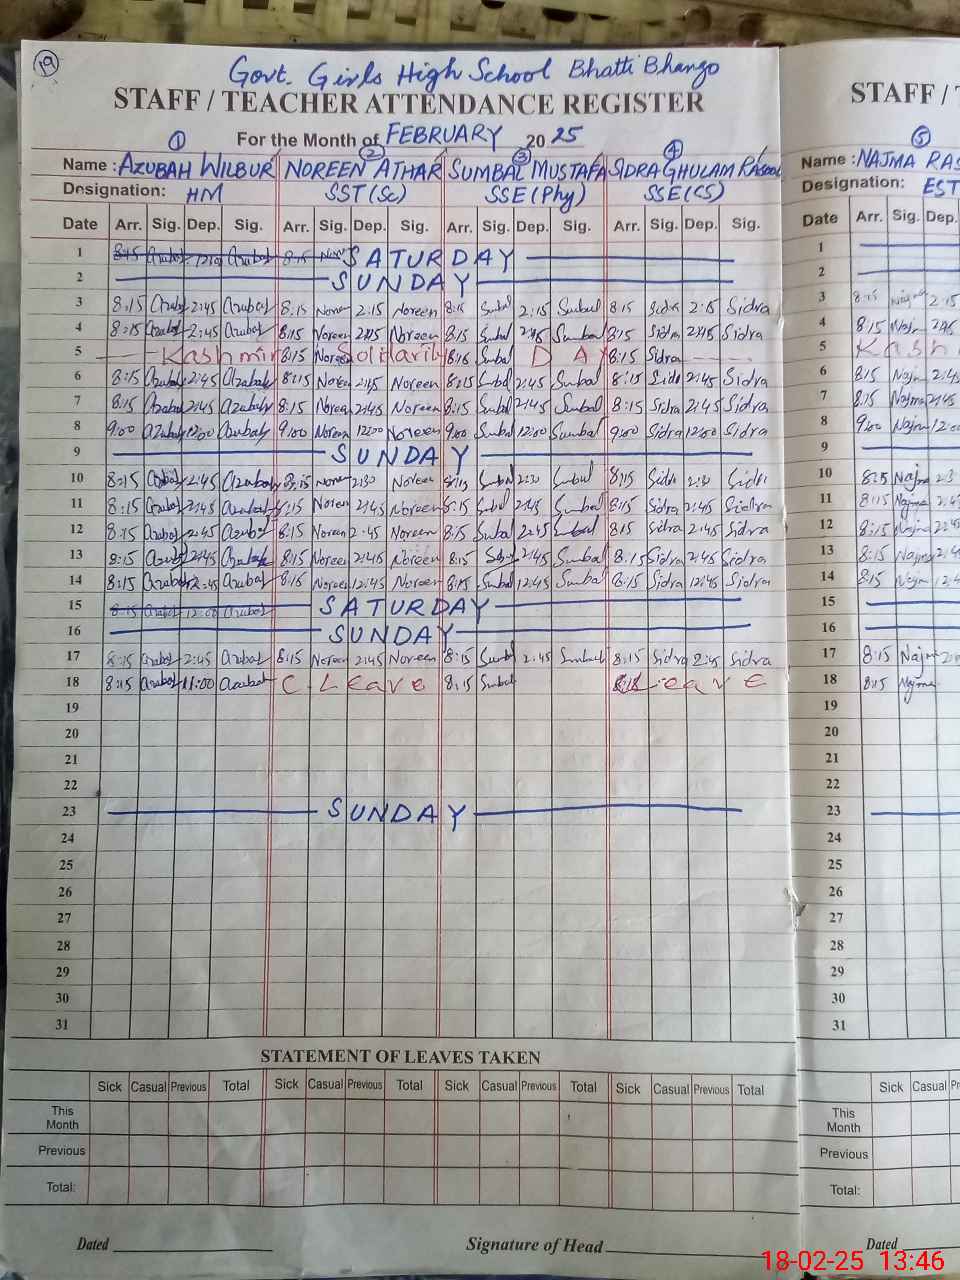 19
Govt. Girls High School Bhatti Bhango
STAFF / TEACHER ATTENDANCE REGISTER
For the Month of FEBRUARY 2025
1 2 3 4
Name : AZUBAH WILBUR NOREEN ATHAR SUMBAL MUSTAFA SIDRA GHULAM RASOOL
Designation: HM SST(Sc) SSE(Phy) SSE(CS)
Date Arr. Sig. Dep. Sig. Arr. Sig. Dep. Sig. Arr. Sig. Dep. Sig. Arr. Sig. Dep. Sig.
1 8:45 8:15 SATURDAY
2 SUNDAY
3 8:15 Azubah 2:45 Azubah 8:15 Noreen 2:15 Noreen 8:15 Sumbal 2:15 Sumbal 8:15 Sidra 2:15 Sidra
4 8:15 Azubah 2:45 Azubah 8:15 Noreen 2:45 Noreen 8:15 Sumbal 2:45 Sumbal 8:15 Sidra 2:45 Sidra
5 Kashmir 8:15 Noreen Solidarity 8:15 Sumbal DAY 8:15 Sidra
6 8:15 Azubah 2:45 Azubah 8:15 Noreen 2:45 Noreen 8:15 Sumbal 2:45 Sumbal 8:15 Sidra 2:45 Sidra
7 8:15 Azubah 2:45 Azubah 8:15 Noreen 2:45 Noreen 8:15 Sumbal 2:45 Sumbal 8:15 Sidra 2:45 Sidra
8 9:00 Azubah 12:00 Azubah 9:00 Noreen 12:00 Noreen 9:00 Sumbal 12:00 Sumbal 9:00 Sidra 12:00 Sidra
9 SUNDAY
10 8:15 Azubah 2:45 Azubah 8:15 Noreen 2:30 Noreen 8:15 Sumbal 2:30 Sumbal 8:15 Sidra 2:30 Sidra
11 8:15 Azubah 2:45 Azubah 8:15 Noreen 2:45 Noreen 8:15 Sumbal 2:45 Sumbal 8:15 Sidra 2:45 Sidra
12 8:15 Azubah 2:45 Azubah 8:15 Noreen 2:45 Noreen 8:15 Sumbal 2:45 Sumbal 8:15 Sidra 2:45 Sidra
13 8:15 Azubah 2:45 Azubah 8:15 Noreen 2:45 Noreen 8:15 Sumbal 2:45 Sumbal 8:15 Sidra 2:45 Sidra
14 8:15 Azubah 12:45 Azubah 8:15 Noreen 12:45 Noreen 8:15 Sumbal 12:45 Sumbal 8:15 Sidra 12:45 Sidra
15 8:15 Azubah 12:00 Azubah SATURDAY
16 SUNDAY
17 8:15 Azubah 2:45 Azubah 8:15 Noreen 2:45 Noreen 8:15 Sumbal 2:45 Sumbal 8:15 Sidra 2:45 Sidra
18 8:15 Azubah 11:00 Azubah C. Leave 8:15 Sumbal 8:15 Leave
19
20
21
22
23 SUNDAY
24
25
26
27
28
29
30
31
STATEMENT OF LEAVES TAKEN
Sick Casual Previous Total Sick Casual Previous Total Sick Casual Previous Total Sick Casual Previous Total
This Month
Previous
Total:
Dated Signature of Head
STAFF /
5
Name : NAJMA RAS
Designation: EST
Date Arr. Sig. Dep.
1
2
3 8:15 Najma 2:15
4 8:15 Najma 2:45
5 Kash
6 8:15 Najma 2:45
7 8:15 Najma 2:45
8 9:00 Najma 12:00
9
10 8:15 Najma 2:3
11 8:15 Najma 2:4
12 8:15 Najma 2:4
13 8:15 Najma 2:4
14 8:15 Najma 12:4
15
16
17 8:15 Najma
18 8:15 Najma
19
20
21
22
23
24
25
26
27
28
29
30
31
Sick Casual
This Month
Previous
Total:
Dated
18-02-25 13:46